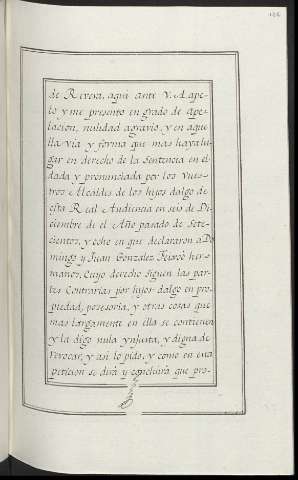 de Revesa, aqui ante V. A ape-
lo y me presento en grado de ape-
lacion, nulidad agravio, y en aque
lla via y forma que mas haya lu
gar en derecho de la Sentencia en el
dada y pronunciada por los Vues-
tros Alcaldes de los hijos dalgo de
esta Real Audiencia en seis de Di-
ciembre de el Año pasado de Sete-
cientos, y ocho en que declararon a Do-
mingo y Juan Gonzalez her-
manos, Cuyo derecho siguen las par-
tes Contrarias por hijos-dalgo en pro-
piedad, posesoria, y otras cosas que
mas largamente en ella se contienen
y la digo nula ynjusta, y digna de
Revocar, y asi lo pido, y como en esta
peticion se dirà y concluirà que pro-